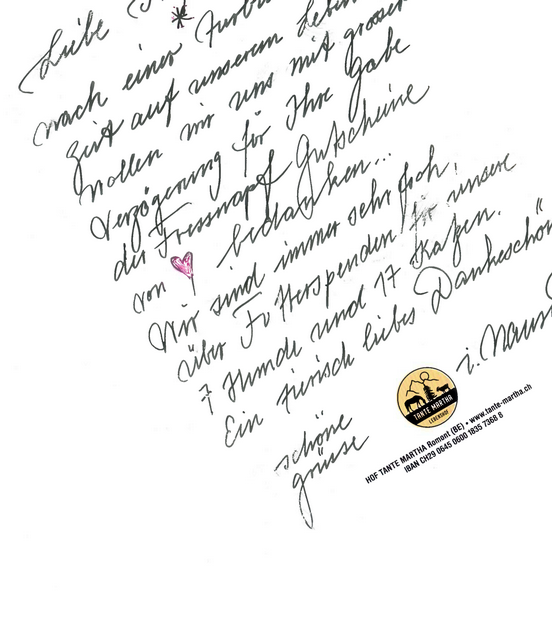 Liebe
nach einer
Zeit auf unserem
wollen wir uns mit grosser
Verzögerung für Ihre Gabe
der Fressnapf Gutscheine
von ♥ bedanken...
Wir sind immer sehr froh,
über Futterspenden für unsere
7 Hunde und 17 Katzen.
Ein tierisch liebes Dankeschön"
schöne i.
grüsse
TANTE MARTHA
LEBENSHOF
HOF TANTE MARTHA Romont (BE) • www.tante-martha.ch
IBAN CH29 0645 0600 1835 7368 8